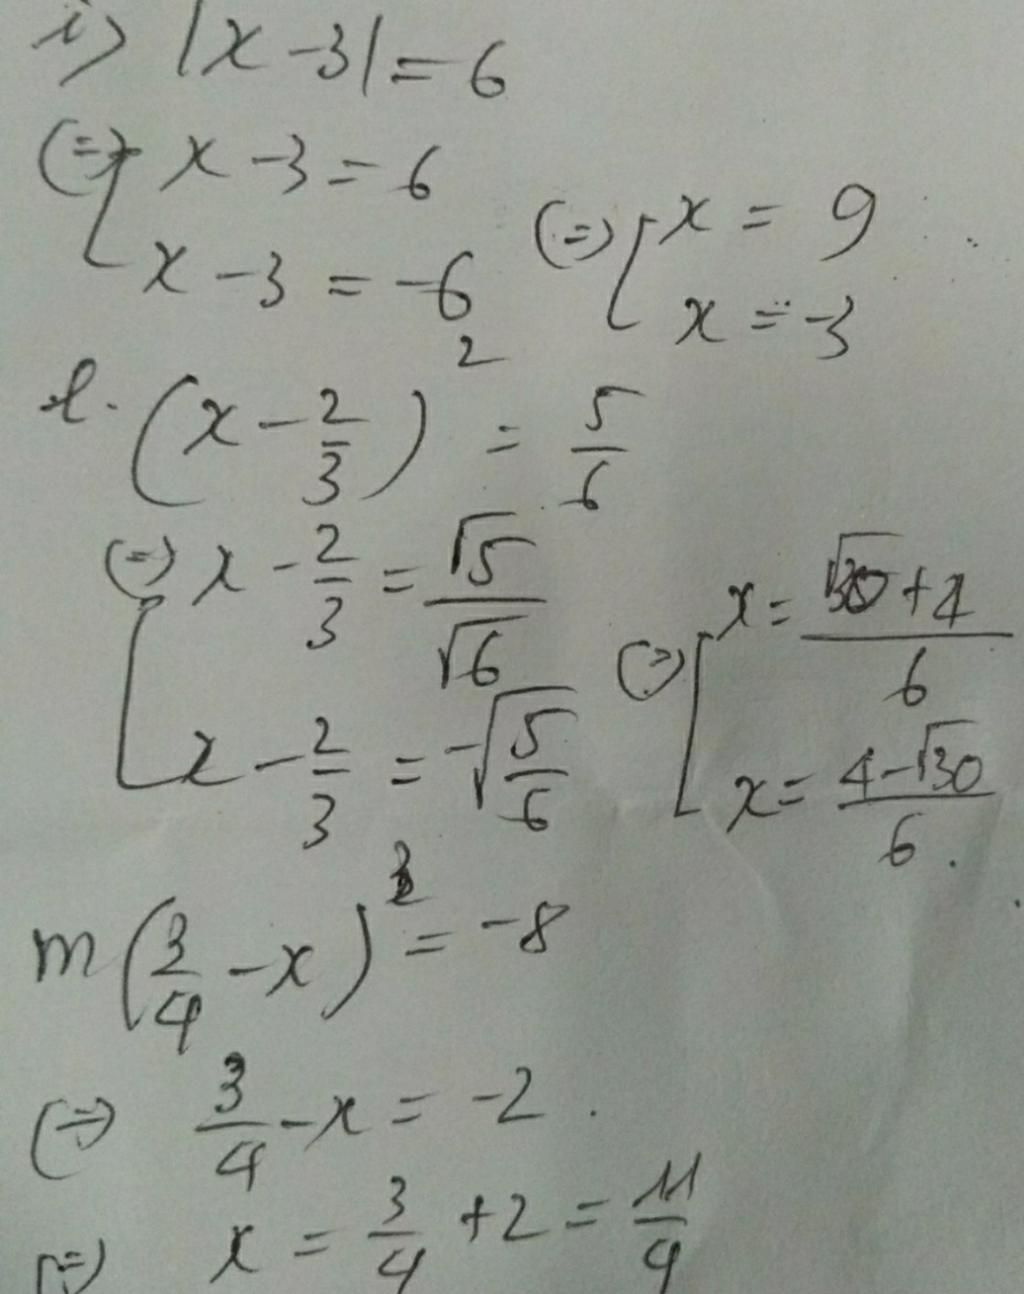 i) |x - 3| = 6
(=) [ x - 3 = 6
x - 3 = -6
(=) [ x = 9
x = -3
l. (x - 2/3)² = 5/6
(=) [ x - 2/3 = √5/√6
x - 2/3 = -√(5/6)
(=) [ x = (√30 + 4)/6
x = (4 - √30)/6.
m (3/4 - x)³ = -8
(=) 3/4 - x = -2.
(=) x = 3/4 + 2 = 11/4